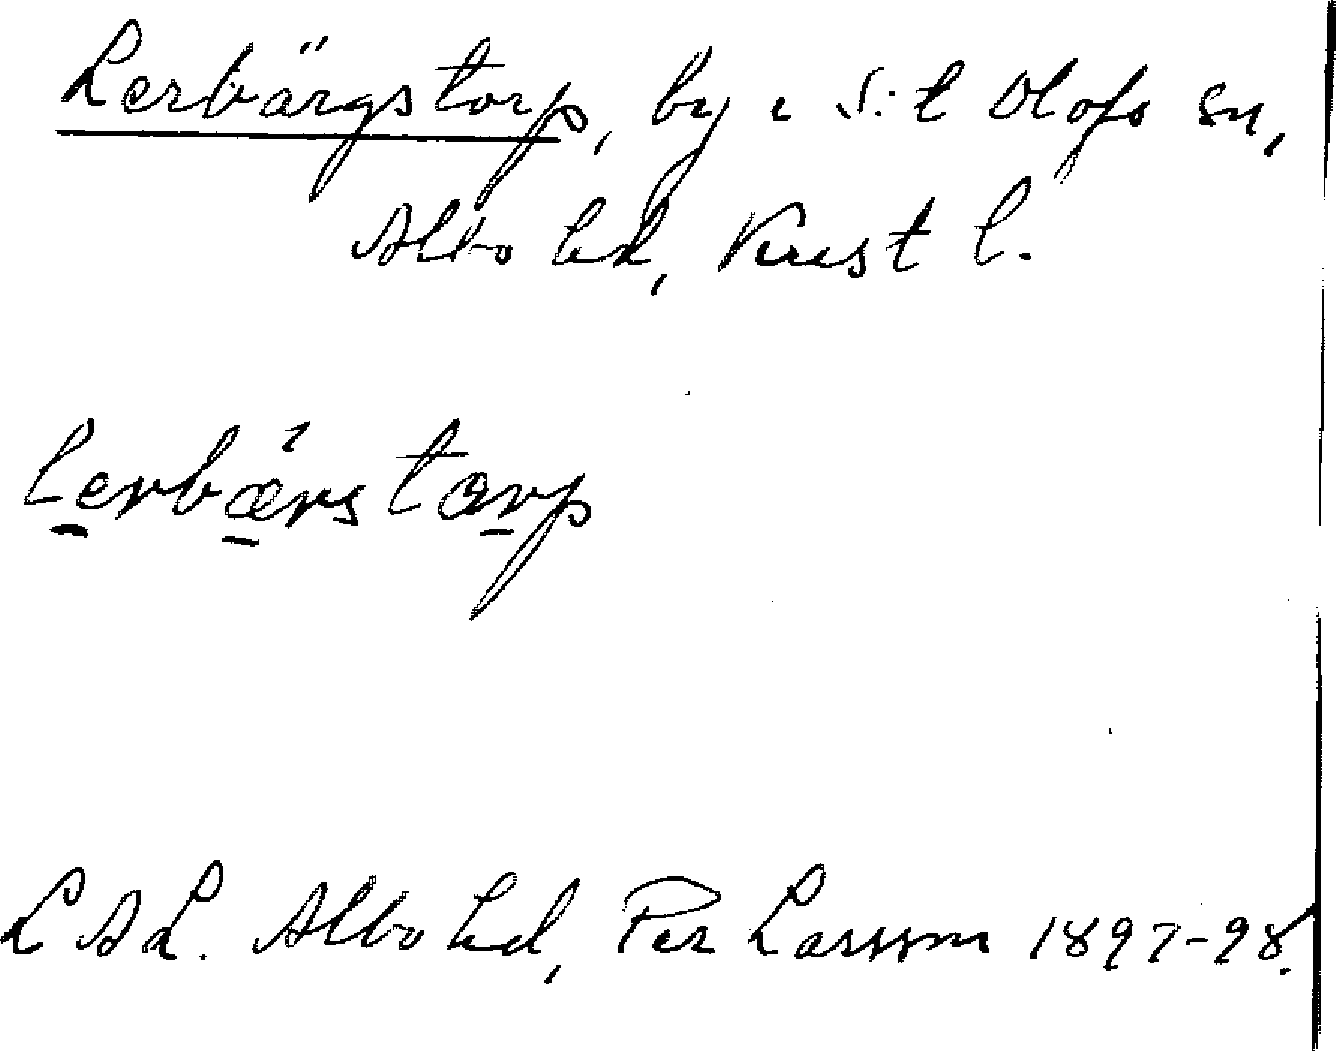 Lerbärgstorp, by i S:t Olofs sn,
Albo hd, Krist l.
lerbærstarp
LAL. Albo hd, Per Larsson 1897-98.